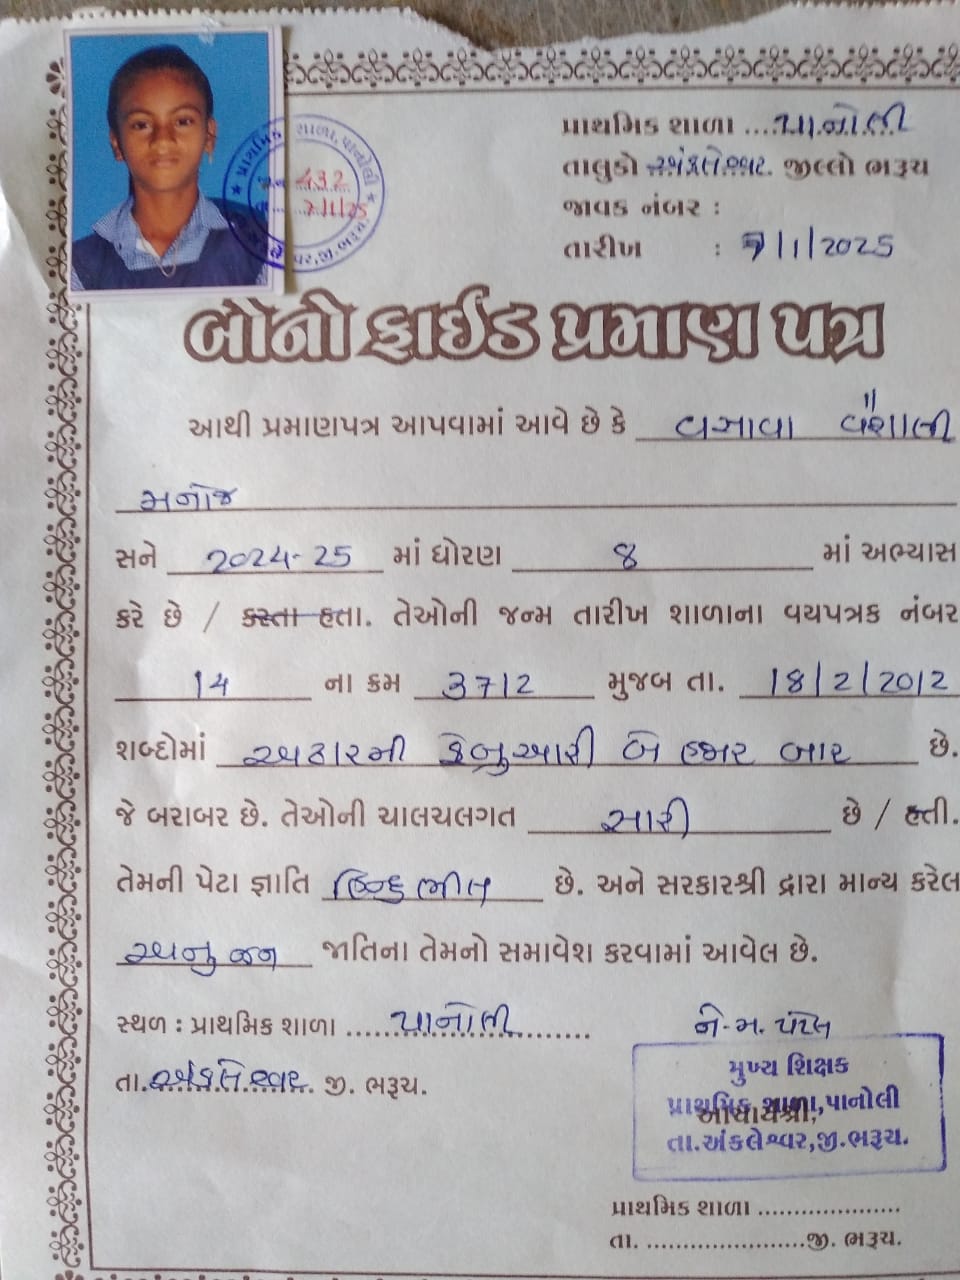 પ્રાથમિક શાળા ....પાનોલી
તાલુકો અંકલેશ્વર. જીલ્લો ભરૂચ
જાવક નંબર :
તારીખ : 7/1/2025
પ્રાથમિક શાળા, પાનોલી
432
7/1/25
બોનોફાઈડ પ્રમાણ પત્ર
આથી પ્રમાણપત્ર આપવામાં આવે છે કે વસાવા વૈશાલી
મનોજ
સને 2024-25 માં ધોરણ 8 માં અભ્યાસ
કરે છે / કરતા હતા. તેઓની જન્મ તારીખ શાળાના વયપત્રક નંબર
14 ના ક્રમ 3712 મુજબ તા. 18/2/2012
શબ્દોમાં અઢારમી ફેબ્રુઆરી બે હજાર બાર છે.
જે બરાબર છે. તેઓની ચાલચલગત સારી છે / હતી.
તેમની પેટા જ્ઞાતિ હિન્દુ ભીલ છે. અને સરકારશ્રી દ્વારા માન્ય કરેલ
અનુ જન જાતિના તેમનો સમાવેશ કરવામાં આવેલ છે.
સ્થળ : પ્રાથમિક શાળા ....પાનોલી....
તા.અંકલેશ્વર. જી. ભરૂચ.
ને. મ. પટેલ
મુખ્ય શિક્ષક
પ્રાથમિક શાળા,પાનોલી
આચાર્યશ્રી,
તા.અંકલેશ્વર,જી.ભરૂચ.
પ્રાથમિક શાળા ....................
તા. ......................જી. ભરૂચ.